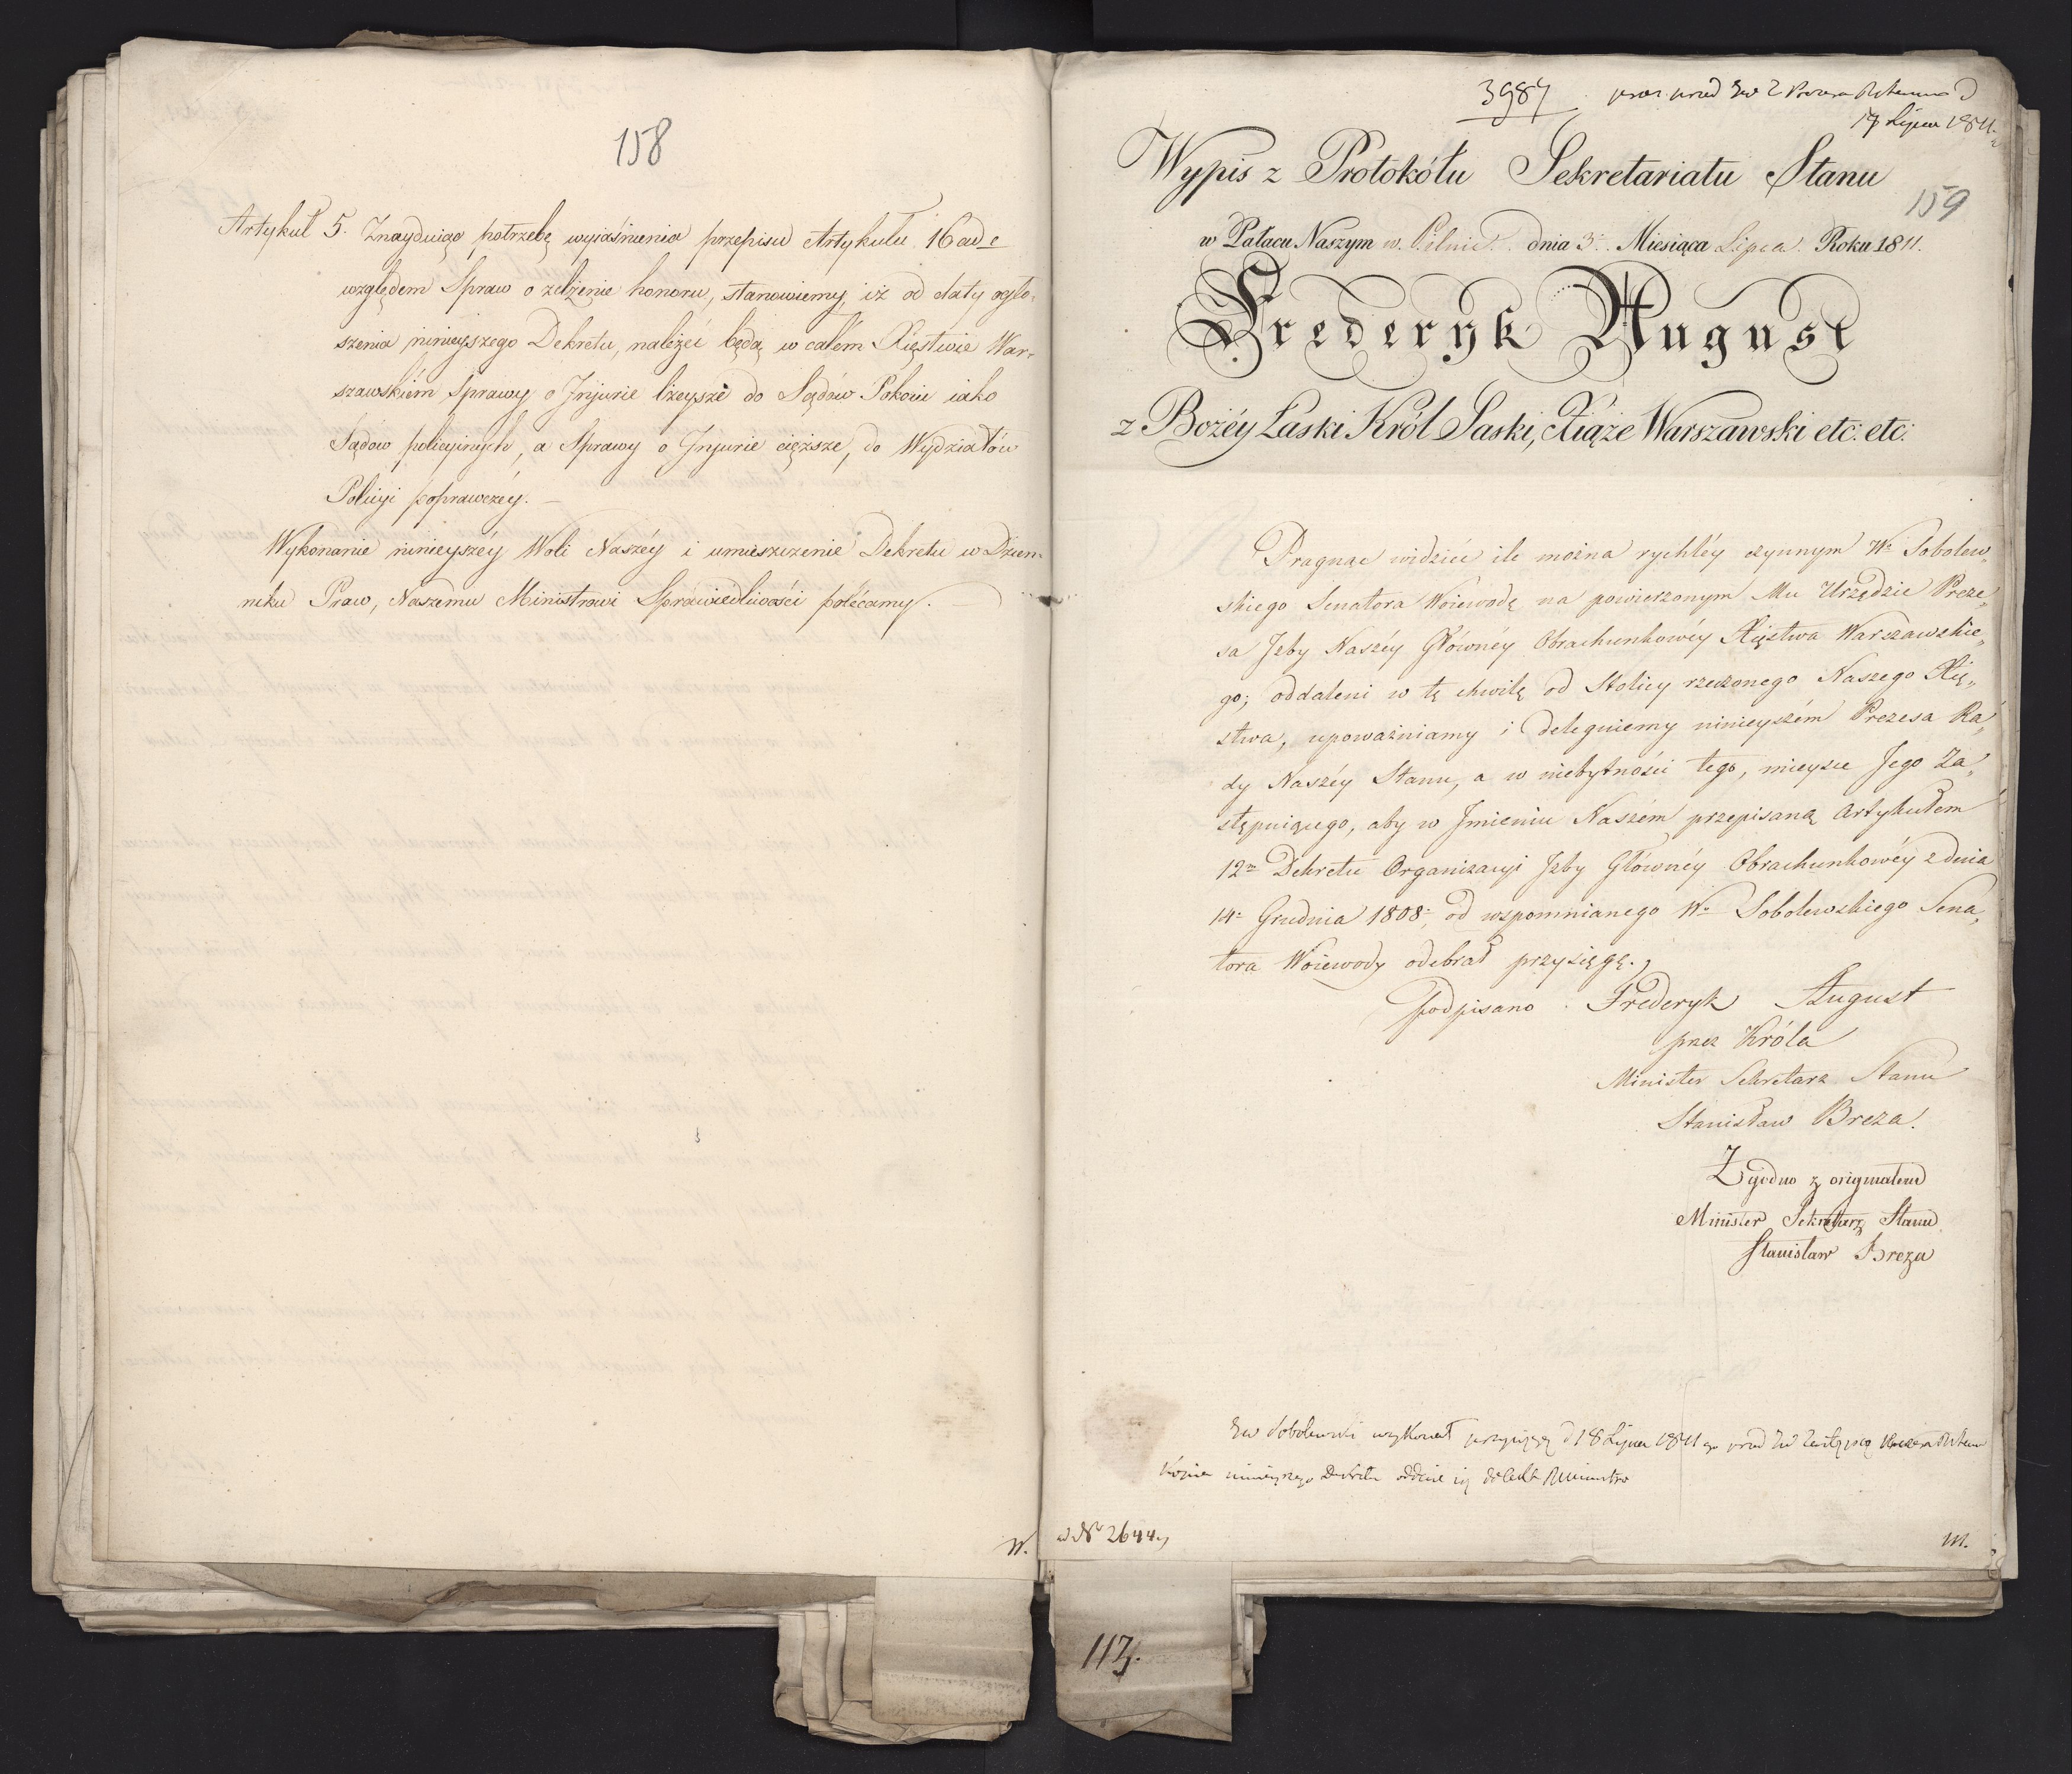 158
Artykuł 5. Znayduiąc potrzebę wyiaśnienia przepisu Artykułu 16 ad c
względem Spraw o zelżenie honoru, stanowiemy, iż od daty ogło-
szenia ninieyszego Dekretu, należeć będą w całém Xięstwie War-
szawskiém Sprawy o Jnjurie lżeysze do Sądów Pokoiu iako
Sądów policyinych, a Sprawy o Jnjurie cięższe, do Wydziałów
Policyi poprawczéy. —
Wykonanie ninieyszéy Woli Naszéy i umieszczenie Dekretu w Dzien-
niku Praw, Naszemu Ministrowi Sprawiedliwości polécamy.
3984
17 Lipca 1811
Wypis z Protokółu Sekretariatu Stanu
159
w Pałacu Naszym w. Pilnic. dnia 3. Miesiąca Lipca. Roku 1811.
Frederyk August
z Bożéy Łaski Król Saski, Xiąże Warszawski etc: etc:
Pragnąc widzieć ile można rychléy czynnym Wo Sobolew„
skiego Senatora Woiewodę na powierzonym Mu Urzędzie Preze„
sa Jzby Naszéy Głównéy Obrachunkowéy Xięstwa Warszawskie„
go; oddaleni w tę chwilę od Stolicy rzeczonego Naszego Xię„
stwa, upoważniamy i deleguiemy ninieyszém Prezesa Ra„
dy Naszéy Stanu, a w niebytności tego, mieysce Jego Za„
stępuiącego, aby w Jmieniu Naszém przepisaną Artykułem
12m Dekretu Organizacyi Jzby Głównéy Obrachunkowéy z dnia
14. Grudnia 1808. od wspomnianego Wo Sobolewskiego Sena„
tora Woiewody odebrał przysięgę.
Podpisano Frederyk August
przez Króla
Minister Sekretarz Stanu
Stanisław Breza.
Zgodno z oryginałem
Minister Sekretarz Stanu
Stanisław Breza
Sobolewski wykonał przysięgę d 18 Lipca 1811 przed Zastępcą Prezesa
ninieyszego Dekretu
ad No 2644
W.
M.
113.